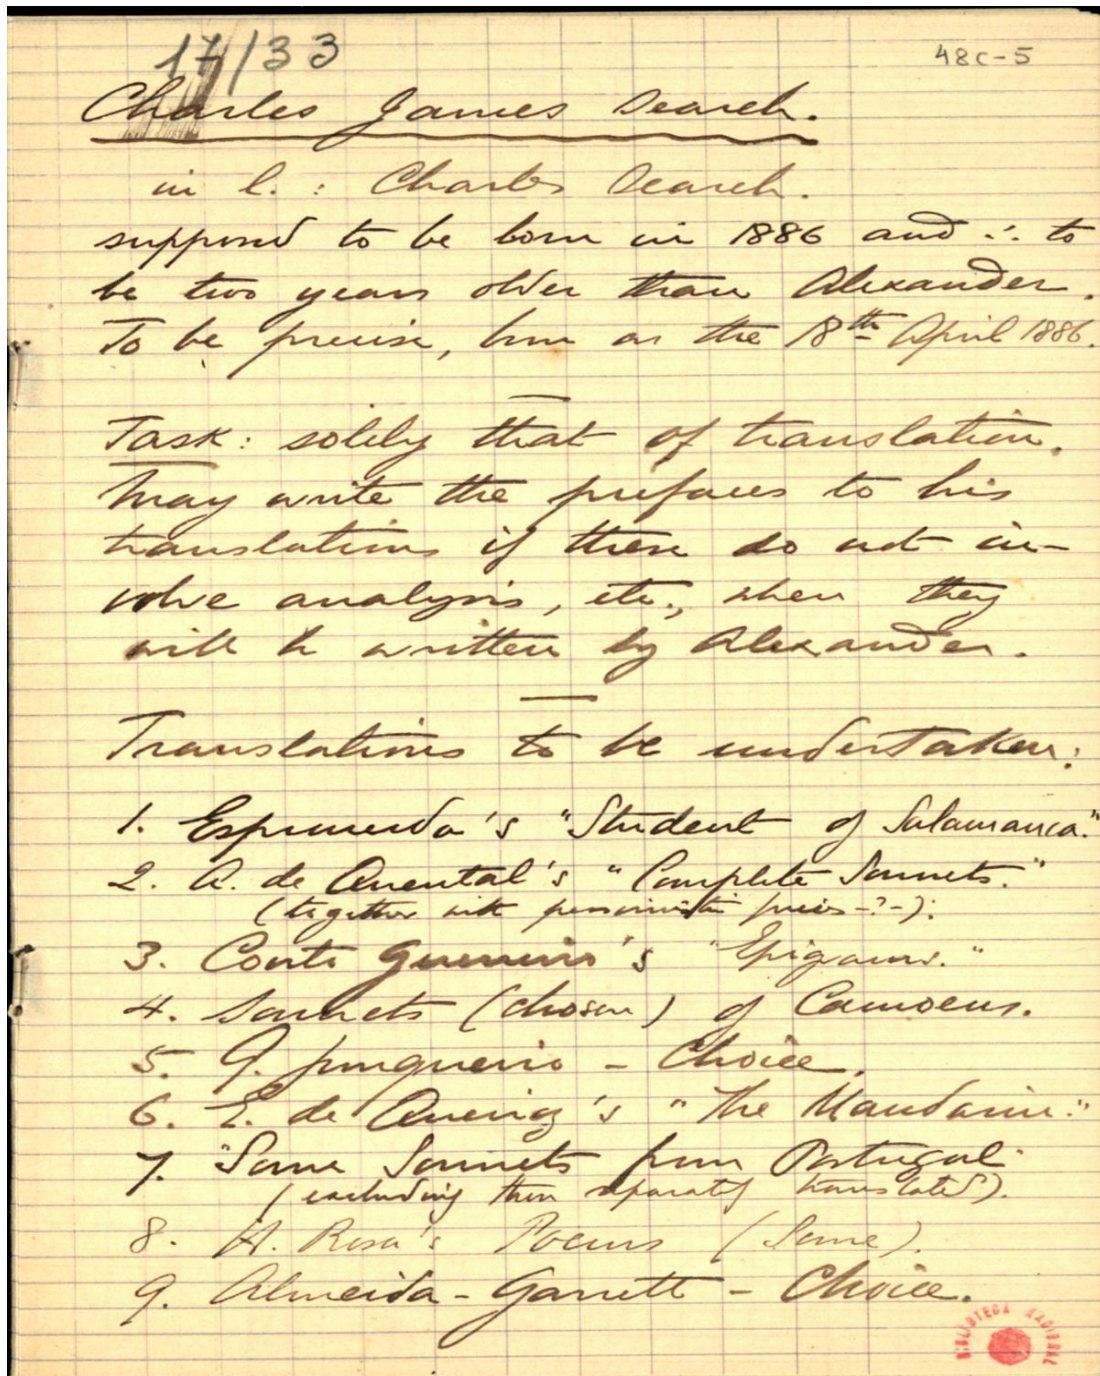 17/33
48C-5
Charles James Search.
in l. : Charles Search.
supposed to be born in 1886 and ∴ to
be two years older than Alexander.
To be precise, born on the 18th April 1886.
Task: solely that of translation.
May write the prefaces to his
translations if these do not in-
volve analysis, etc., when they
will be written by Alexander.
Translations to be undertaken:
1. Espronceda's "Student of Salamanca."
2. A. de Quental's "Complete Sonnets."
(together with pessimistic -?-).
3. Conte Guerreiro's "Epigrams."
4. Sonnets (chosen) of Camoens.
5. G. Junqueiro - Choice.
6. E. de Queiroz's "The Mandarin."
7. "Some Sonnets from Portugal"
(excluding those separately translated).
8. H. Rosa's Poems (Some).
9. Almeida-Garrett - Choice.
BIBLIOTECA NACIONAL